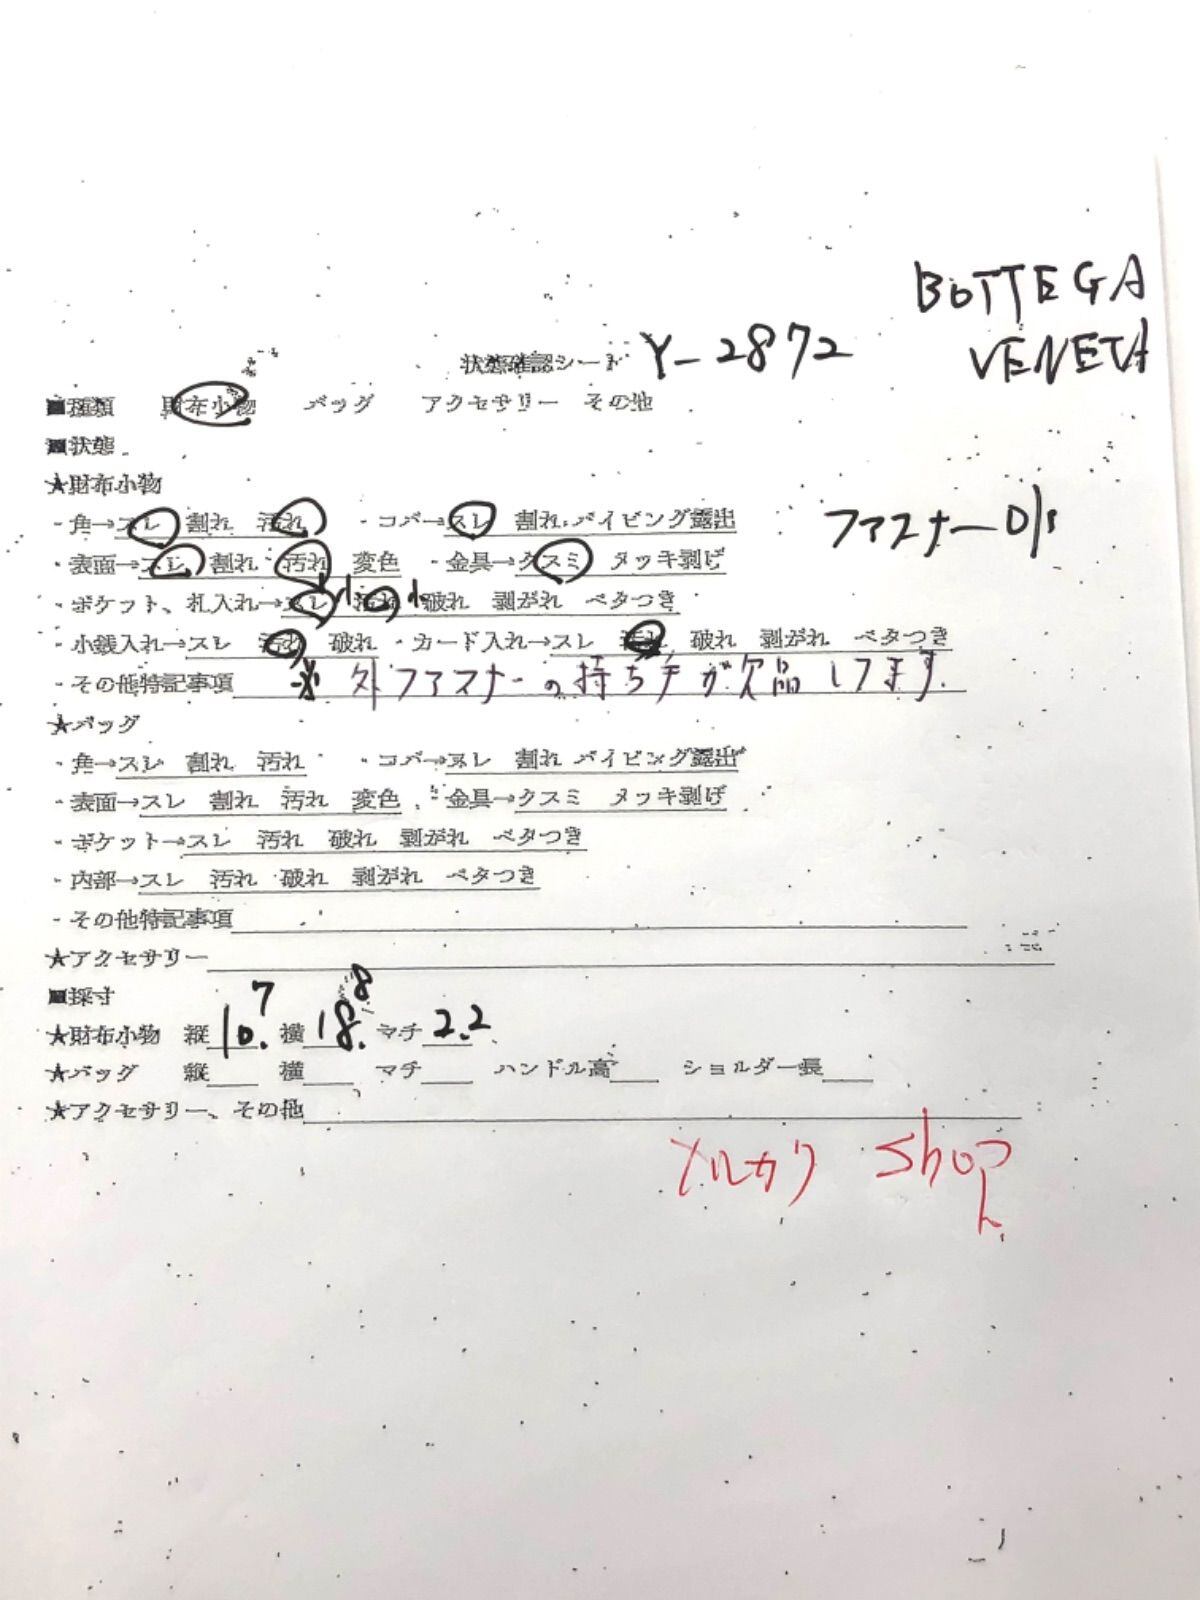 BOTTEGA
VENETA
状態確認シート Y-2872
■種類 財布小物 バッグ アクセサリー その他
■状態
★財布小物
・角→スレ 割れ 汚れ ・コバ→スレ 割れ パイピング露出
ファスナー O/
・表面→スレ 割れ 汚れ 変色 ・金具→クスミ メッキ剥げ
・ポケット、札入れ→スレ 小 汚れ 小 破れ 剥がれ ベタつき
・小銭入れ→スレ 汚れ 破れ ・カード入れ→スレ 汚れ 破れ 剥がれ ベタつき
・その他特記事項 ※ 外ファスナーの持ち手が欠品してます.
★バッグ
・角→スレ 割れ 汚れ ・コバ→スレ 割れ パイピング露出
・表面→スレ 割れ 汚れ 変色 ・金具→クスミ メッキ剥げ
・ポケット→スレ 汚れ 破れ 剥がれ ベタつき
・内部→スレ 汚れ 破れ 剥がれ ベタつき
・その他特記事項
★アクセサリー
■採寸
★財布小物 縦 10.7 横 18.8 マチ 2.2
★バッグ 縦 横 マチ ハンドル高 ショルダー長
★アクセサリー、その他
メルカリ shop